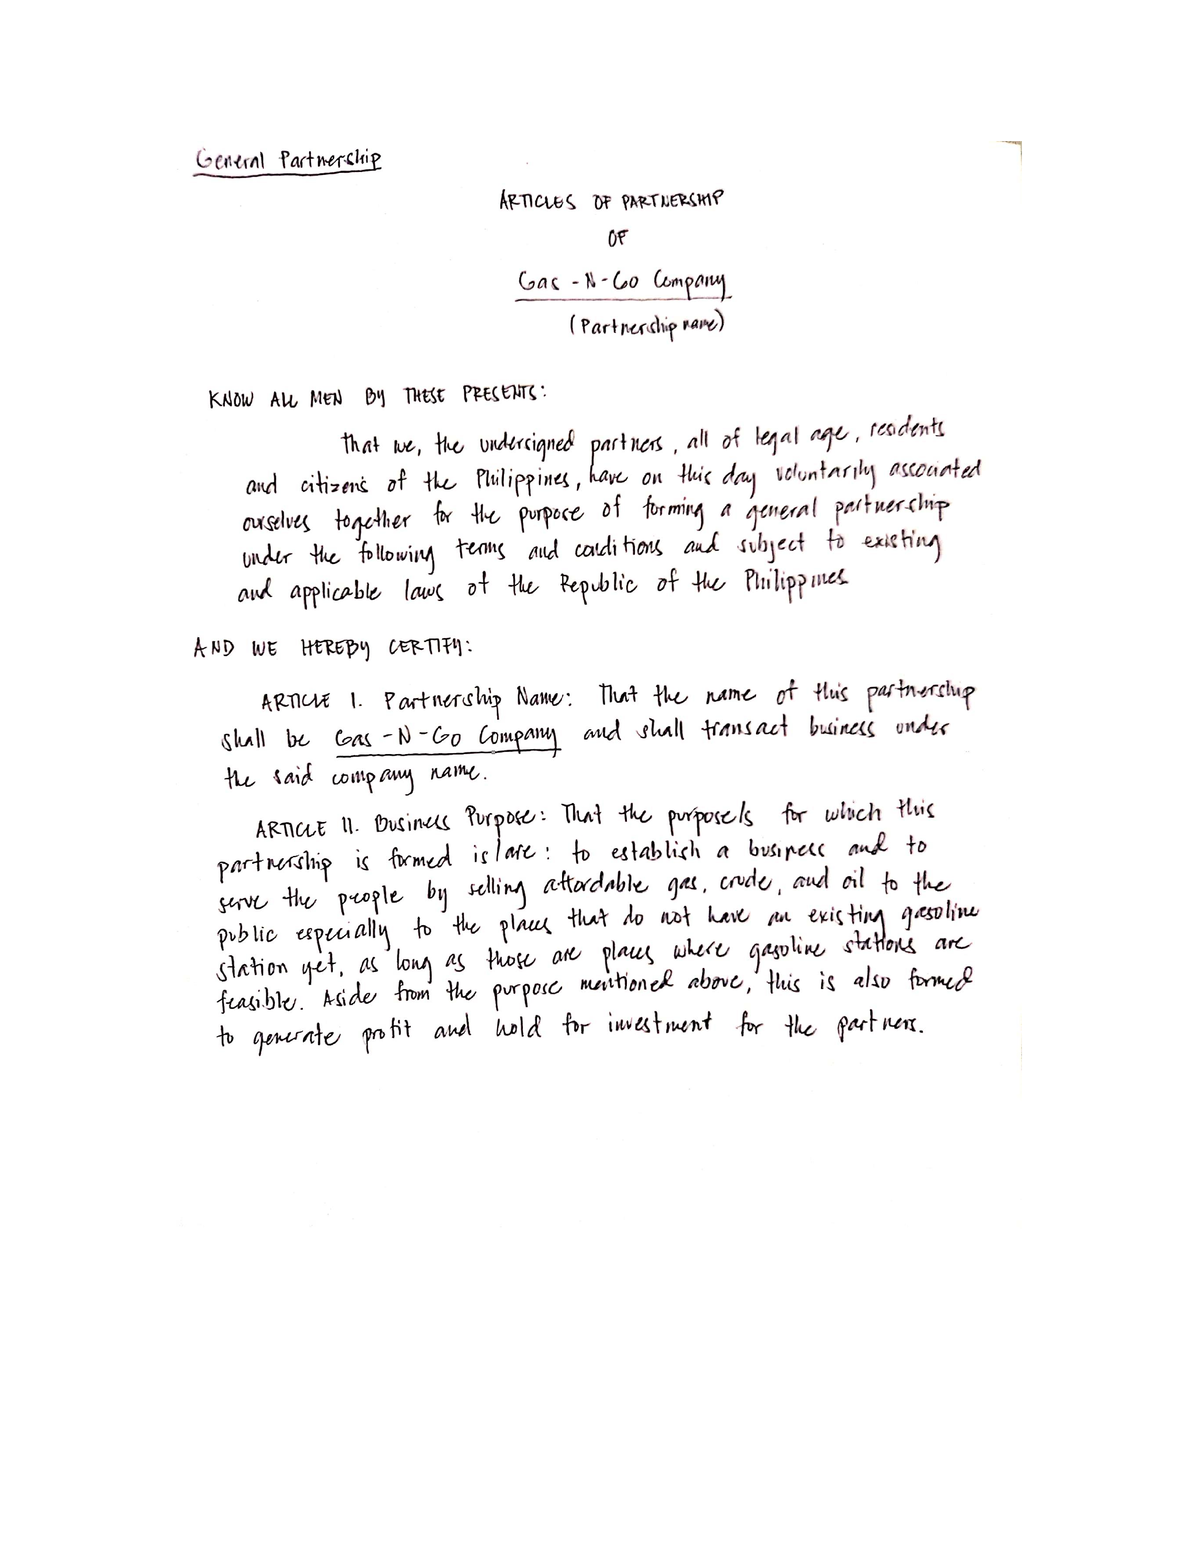 General Partnership
ARTICLES OF PARTNERSHIP
OF
Gas-N-Go Company
(Partnership name)
KNOW ALL MEN BY THESE PRESENTS:
That we, the undersigned partners, all of legal age, residents
and citizens of the Philippines, have on this day voluntarily associated
ourselves together for the purpose of forming a general partnership
under the following terms and conditions and subject to existing
and applicable laws of the Republic of the Philippines
AND WE HEREBY CERTIFY:
ARTICLE I. Partnership Name: That the name of this partnership
shall be Gas-N-Go Company and shall transact business under
the said company name.
ARTICLE II. Business Purpose: That the purpose/s for which this
partnership is formed is/are: to establish a business and to
serve the people by selling affordable gas, crude, and oil to the
public especially to the places that do not have an existing gasoline
station yet, as long as those are places where gasoline stations are
feasible. Aside from the purpose mentioned above, this is also formed
to generate profit and hold for investment for the partners.